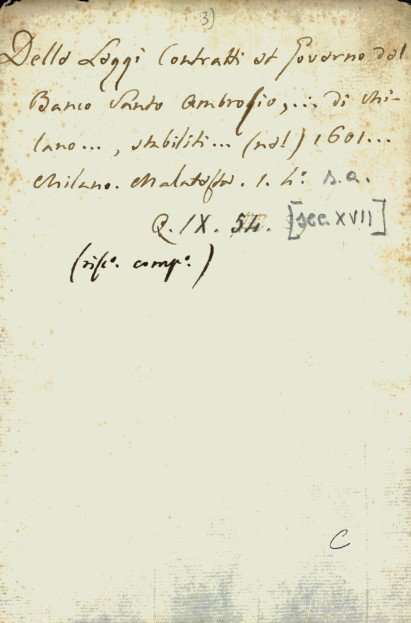 3)
Delle Leggi Contratti et Governo del
Banco Santo Ambrosio, ... di Mi-
lano ..., stabiliti ... (nel) 1601 ...
Milano. Malatesta. 1. 4°. s. a.
Q. IX. 54. [sec. XVII]
(risc°. comp°.)
C